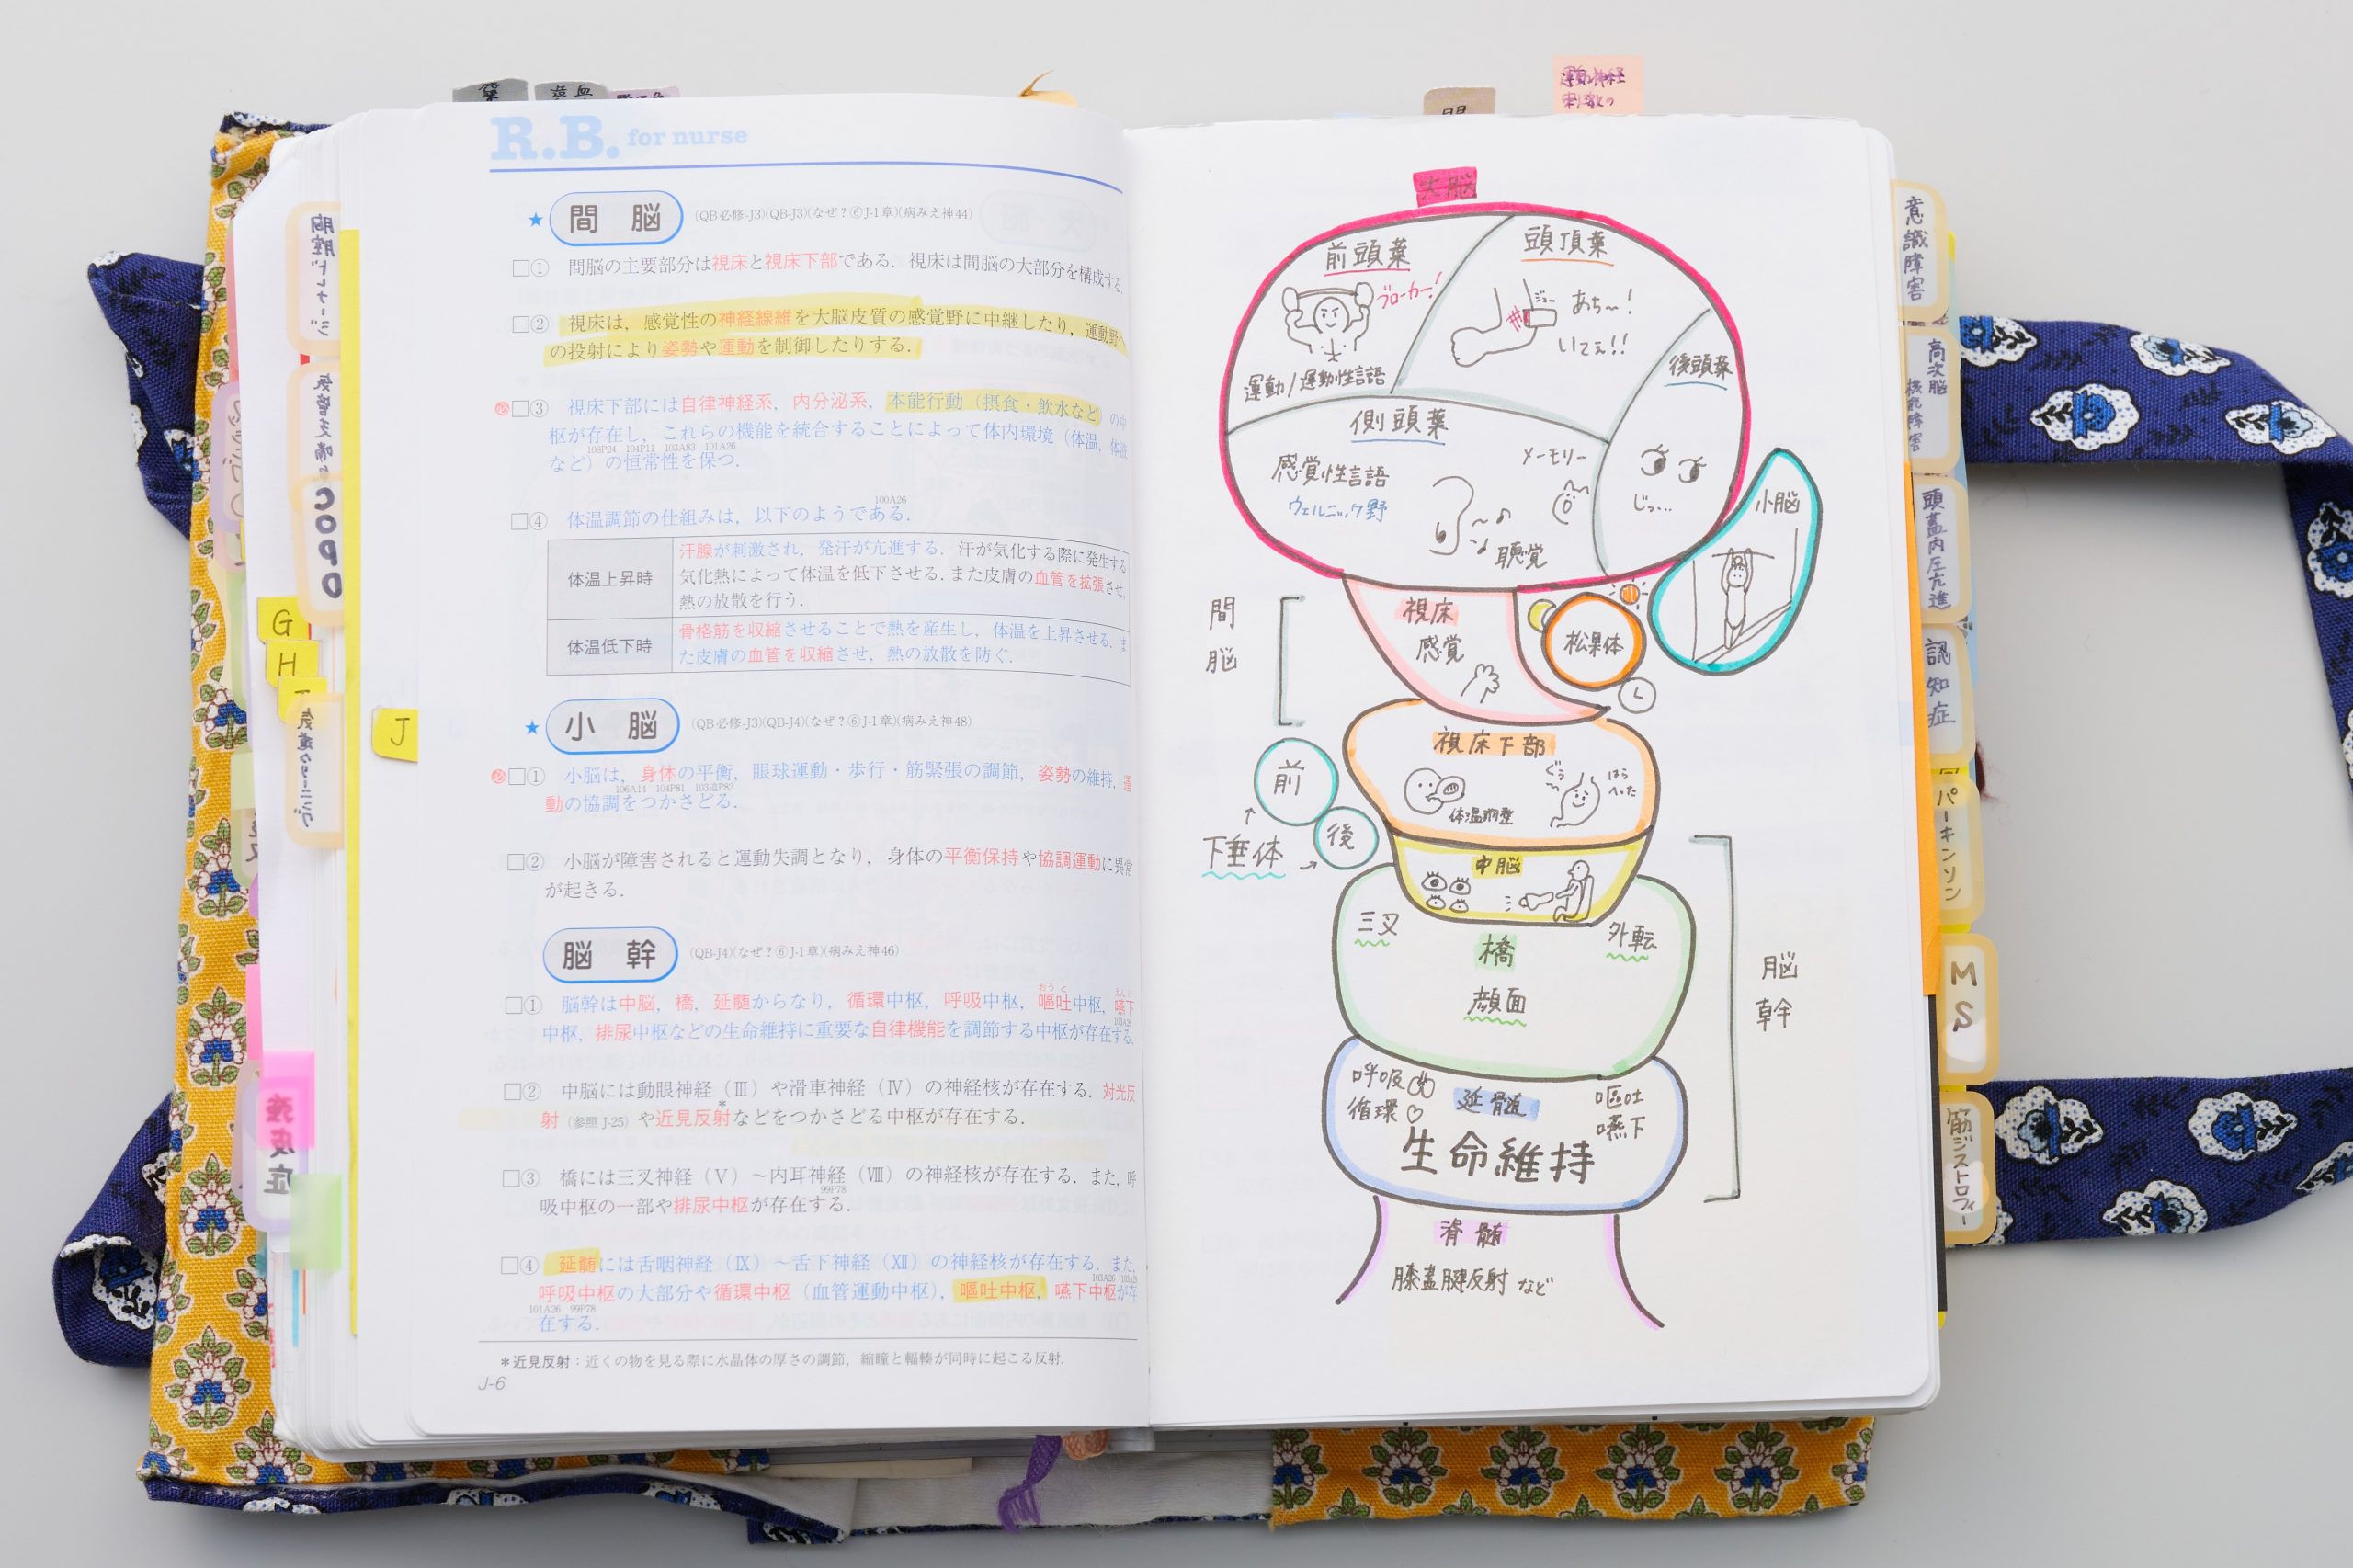 R.B. for nurse
間脳 (QB必修-J3)(QB-J3)(なぜ?⑥J-1章)(病みえ神44)
□① 間脳の主要部分は視床と視床下部である.視床は間脳の大部分を構成する.
□② 視床は,感覚性の神経線維を大脳皮質の感覚野に中継したり,運動野へ
の投射により姿勢や運動を制御したりする.
□③ 視床下部には自律神経系,内分泌系,本能行動(摂食・飲水など)の中
枢が存在し,これらの機能を統合することによって体内環境(体温,体液
108P24 104P11 103A83 101A26
など)の恒常性を保つ.
100A26
□④ 体温調節の仕組みは,以下のようである.
体温上昇時
汗腺が刺激され,発汗が亢進する.汗が気化する際に発生する
気化熱によって体温を低下させる.また皮膚の血管を拡張させ,
熱の放散を行う.
体温低下時
骨格筋を収縮させることで熱を産生し,体温を上昇させる.ま
た皮膚の血管を収縮させ,熱の放散を防ぐ.
小脳 (QB必修-J3)(QB-J4)(なぜ?⑥J-1章)(病みえ神48)
□① 小脳は,身体の平衡,眼球運動・歩行・筋緊張の調節,姿勢の維持,運
106A14 104P81 103追P82
動の協調をつかさどる.
□② 小脳が障害されると運動失調となり,身体の平衡保持や協調運動に異常
が起きる.
脳幹 (QB-J4)(なぜ?⑥J-1章)(病みえ神46)
□① 脳幹は中脳,橋,延髄からなり,循環中枢,呼吸中枢,嘔吐中枢,嚥下
おうと
えんげ
103A26
中枢,排尿中枢などの生命維持に重要な自律機能を調節する中枢が存在する.
□② 中脳には動眼神経(Ⅲ)や滑車神経(Ⅳ)の神経核が存在する.対光反
射(参照 J-25)や近見反射*などをつかさどる中枢が存在する.
□③ 橋には三叉神経(Ⅴ)〜内耳神経(Ⅷ)の神経核が存在する.また,呼
99P78
吸中枢の一部や排尿中枢が存在する.
□④ 延髄には舌咽神経(Ⅸ)〜舌下神経(Ⅻ)の神経核が存在する.また,
呼吸中枢の大部分や循環中枢(血管運動中枢),嘔吐中枢,嚥下中枢が存
101A26 99P78
在する.
*近見反射:近くの物を見る際に水晶体の厚さの調節,縮瞳と輻輳が同時に起こる反射.
J-6
G
H
J
COPD
胸腔ドレナージ
強皮症
大脳
前頭葉
ブローカー!
運動/運動性言語
頭頂葉
ジュー
あち〜!
いてぇ!!
後頭葉
じっ...
側頭葉
感覚性言語
ウェルニッケ野
メーモリー
聴覚
小脳
間脳
視床
感覚
松果体
視床下部
体温調整
ぐぅ
はら
へった
前
後
下垂体
中脳
三叉
橋
外転
顔面
脳幹
呼吸
循環
延髄
嘔吐
嚥下
生命維持
脊髄
膝蓋腱反射 など
意識障害
高次脳
機能障害
頭蓋内圧亢進
認知症
パーキンソン
MS
筋ジストロフィー